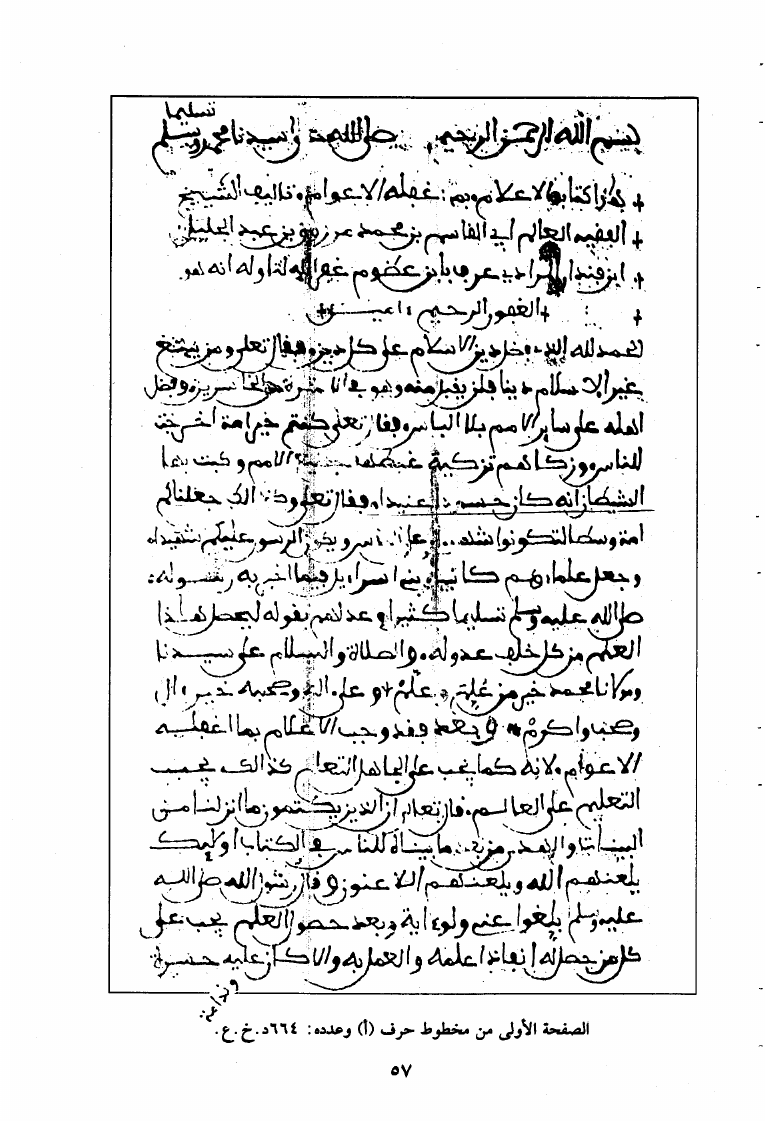 تسليما
بسم الله الرحمن الرحيم صلى الله على سيدنا محمد وسلم
هذا كتاب الاعلام بما اغفله الاعوام تاليف الشيخ
الفقيه العالم ابي القاسم بن محمد مرزوق بن عبد الجليل
ابن فندار المرادي عرف بابن عظوم غفر الله لنا وله انه هو
الغفور الرحيم امين
الحمد لله الذي فضل دين الاسلام على كل دين فقال تعلى ومن يبتغ
غير الاسلام دينا فلن يقبل منه وهو في الاخرة من الخاسرين وفضل
اهله على ساير الامم بلا الباس فقال تعلى كنتم خير امة اخرجت
للناس وزكاهم تزكية الامم وكبت بها
الشيطان انه كان عنيدا فقال تعلى وكذلك جعلناكم
امة وسطا لتكونوا شهداء على الناس ويكون الرسول عليكم شهيدا
وجعل علماءهم كانبياء بني اسراءيل فيما اخبر به رسوله
صلى الله عليه وسلم تسليما كثيرا وعدلهم بقوله يحمل هذا
العلم من كل خلف عدوله والصلاة والسلام على سيدنا
ومولانا محمد خير من علم وعلى اله وصحبه خير ال
وصحب واكرم وبعد فقد وجب الاعلام بما اغفله
الاعوام لانه كما يجب على الجاهل التعلم كذالك يجب
التعليم على العالم قال تعلى ان الذين يكتمون ما انزلنا من
البينات والهدى من بعد ما بيناه للناس في الكتاب اوليك
يلعنهم الله ويلعنهم اللاعنون وقال رسول الله صلى الله
عليه وسلم بلغوا عني ولو اية وبعد حصول العلم يجب على
كل من حصل له انفاذ اعلمه والعمل به والا كان عليه حسرة
وندامة
الصفحة الأولى من مخطوط حرف (أ) وعدده: ٦٦٤د.خ.ع.
٥٧